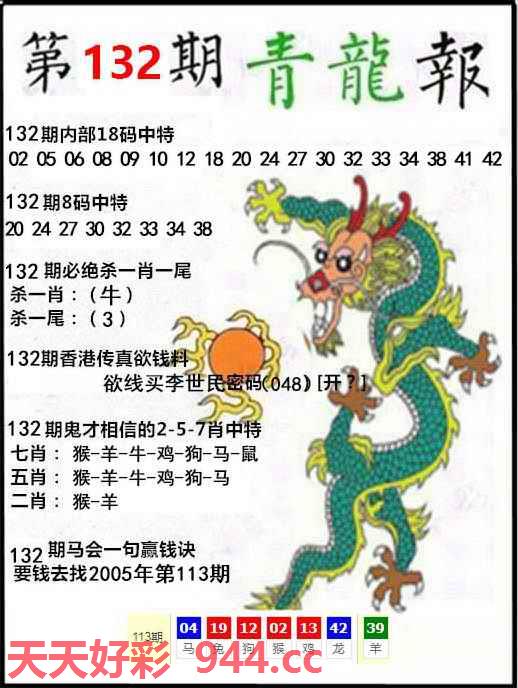 第132期 青龍報
132期内部18码中特
02 05 06 08 09 10 12 18 20 24 27 30 32 33 34 38 41 42
132期8码中特
20 24 27 30 32 33 34 38
132期必绝杀一肖一尾
杀一肖：（牛）
杀一尾：（3）
132期香港传真欲钱料
欲线买李世民密码(048)[开？]
132期鬼才相信的2-5-7肖中特
七肖：猴-羊-牛-鸡-狗-马-鼠
五肖：猴-羊-牛-鸡-狗-马
二肖：猴-羊
132期马会一句赢钱诀
要钱去找2005年第113期
113期 04 19 12 02 13 42 39
马 兔 狗 猴 鸡 龙 羊
天天好彩 944.cc